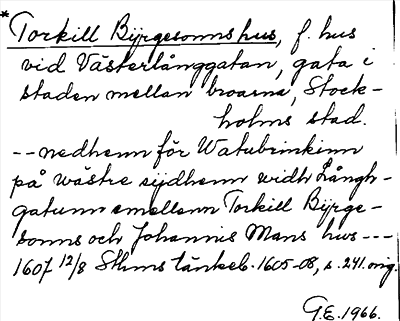 *Torkill Byrgesonns hus, f. hus
vid Västerlånggatan, gata i
staden mellan broarna, Stock-
holms stad.
-- nedhenn för Watubrinkinn
på wästre sijdhenn widh Långh-
gatunn emellann Torkill Byrge-
sonns och Johannis Mans hus ---
1607 12/8 Sthms tänkeb. 1605-08, s. 241. orig.
G.E. 1966.